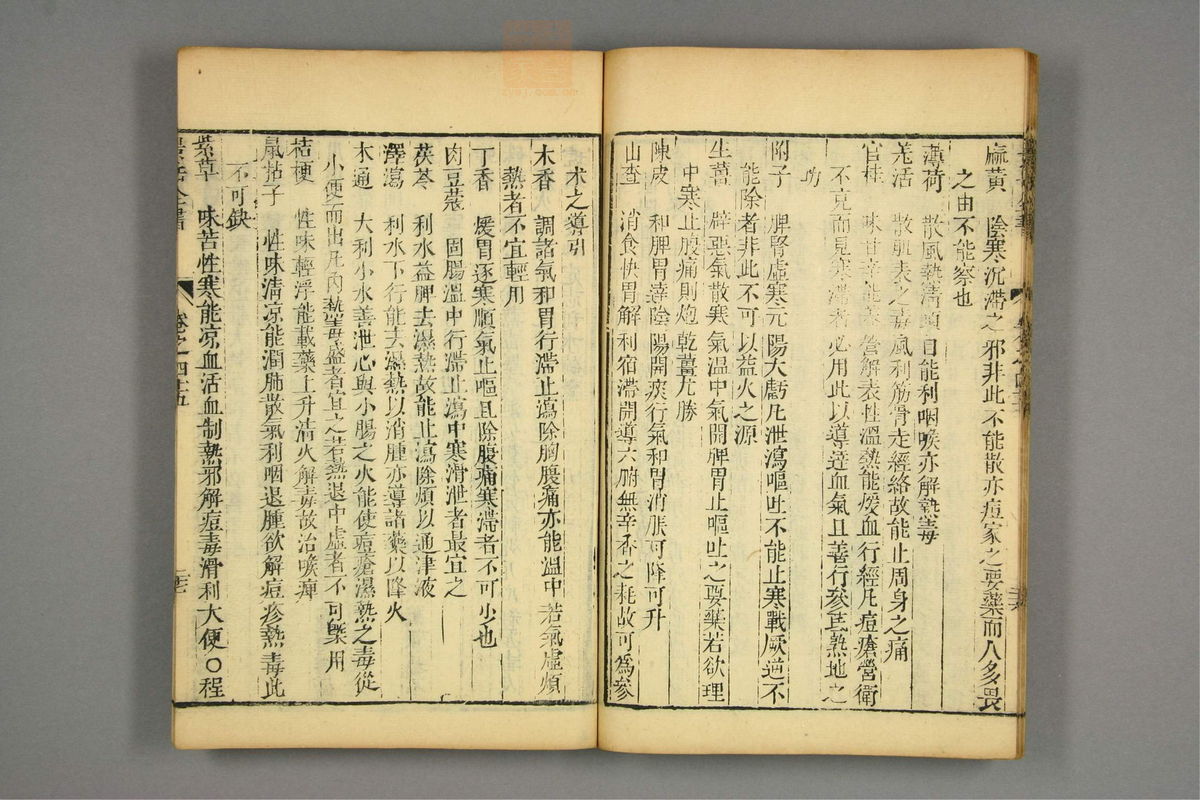 麻黃　陰寒沉滯之邪非此不能散亦痘家之要藥而人多畏
之由不能察也
薄荷　散風熱清頭目能利咽喉亦解熱毒
羌活　散肌表之毒風利筋骨走經絡故能止周身之痛
官桂　味甘辛能養營解表性溫熱能煖血行經凡痘瘡營衛
不充而見寒滯者必用此以導達血氣且善行參芪熟地之
功
附子　脾腎虛寒元陽大虧凡泄瀉嘔吐不能止寒戰厥逆不
能除者非此不可以益火之源
生薑　辟惡氣散寒氣溫中氣開脾胃止嘔吐之要藥若欲理
中寒止腹痛則炮乾薑尤勝
陳皮　和脾胃達陰陽開痰行氣和胃消脹可降可升
山查　消食快胃解利宿滯開導六腑無辛香之耗故可爲參
朮之導引
木香　調諸氣和胃行滯止瀉除胸腹痛亦能溫中若氣虛煩
熱者不宜輕用
丁香　煖胃逐寒順氣止嘔且除腹痛寒滯者不可少也
肉荳蔻　固腸溫中行滯止瀉中寒滑泄者最宜之
茯苓　利水益脾去濕熱故能止瀉除煩以通津液
澤瀉　利水下行能去濕熱以消腫亦導諸藥以降火
木通　大利小水善泄心與小腸之火能使痘瘡濕熱之毒從
小便而出凡內熱毒盛者宜之若熱退中虛者不可槩用
桔梗　性味輕浮能載藥上升清火解毒故治喉痺
鼠粘子　性味清凉能潤肺散氣利咽退腫欲解痘疹熱毒此
不可缺
紫草　味苦性寒能凉血活血制熱邪解痘毒滑利大便○程
景岳全書　卷之四十五